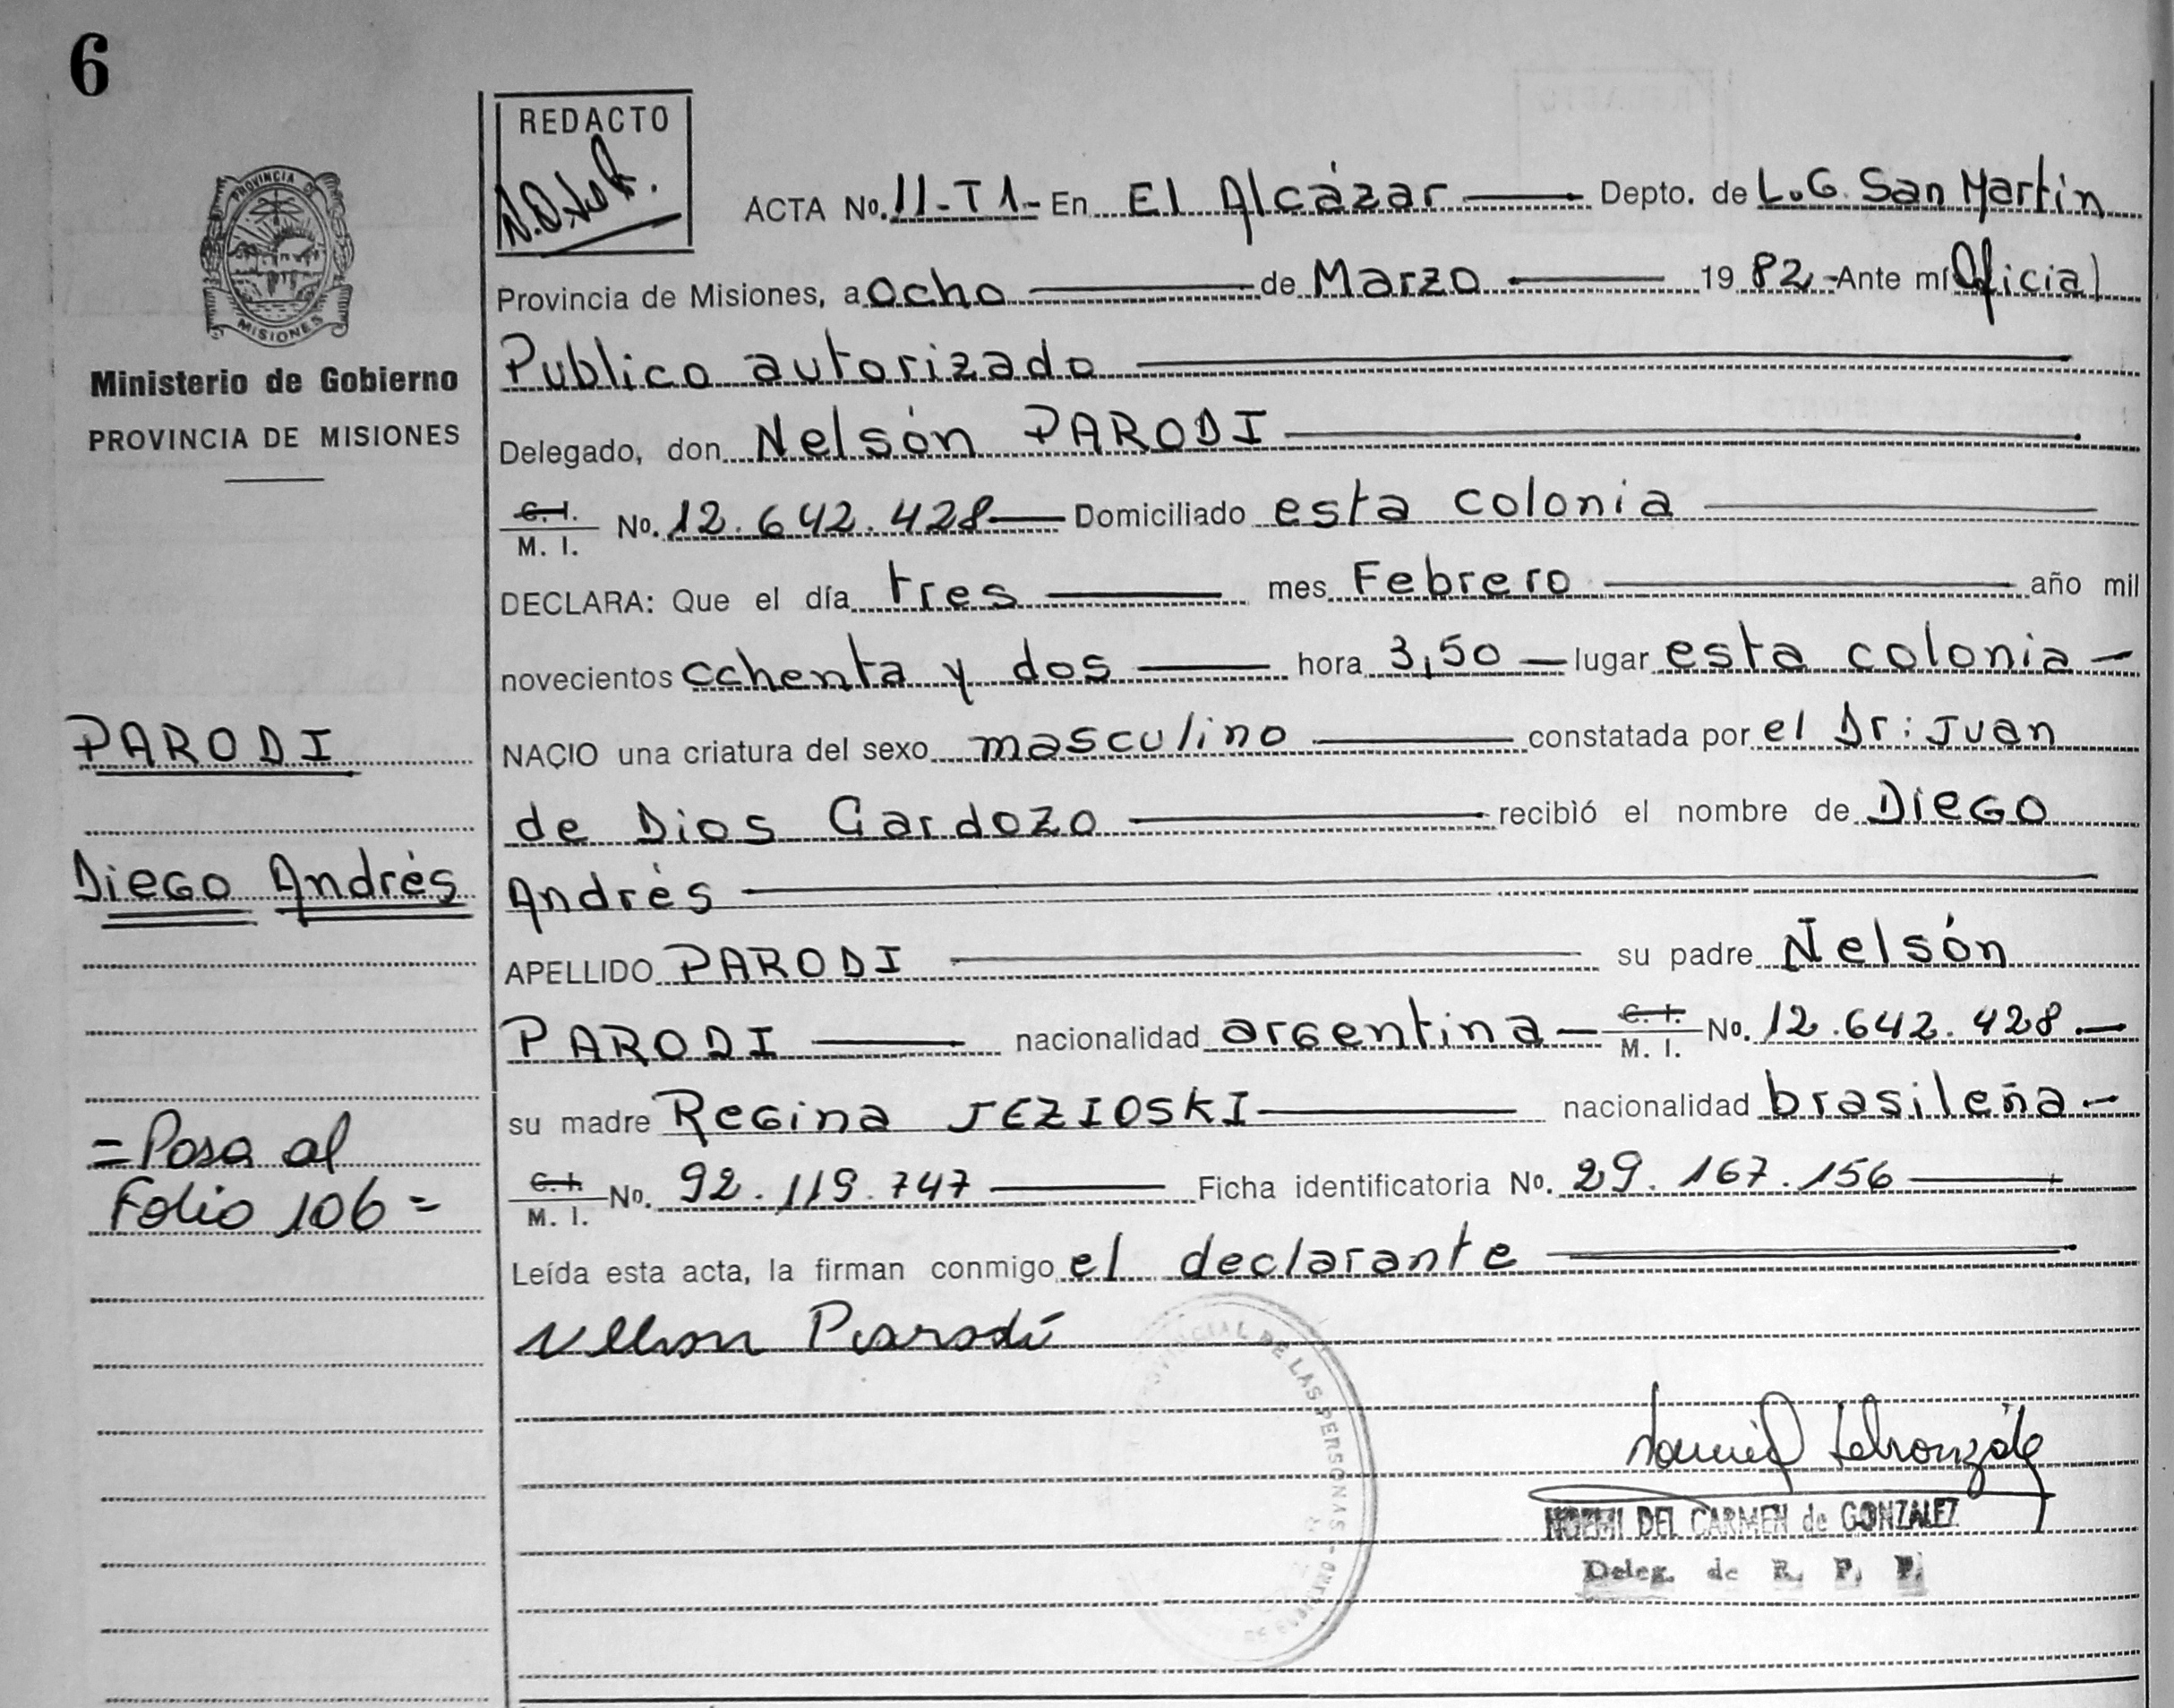 6
REDACTO
PROVINCIA D
MISIONES
Ministerio de Gobierno
PROVINCIA DE MISIONES
ACTA No. 11-T1- En El Alcázar Depto. de L.G. San Martín
Provincia de Misiones, a Ocho de Marzo 1982 - Ante mí Oficial
Publico autorizado
Delegado, don Nelsón PARODI
C. I. M. I. No. 12.642.428 Domiciliado esta colonia
DECLARA: Que el día tres mes Febrero año mil
novecientos cchenta y dos hora 3,50 lugar esta colonia
NACIO una criatura del sexo masculino constatada por el Dr: Juan
de Dios Cardozo recibió el nombre de DIEGO
Andrés
APELLIDO PARODI su padre Nelsón
PARODI nacionalidad argentina C. I. M. I. No. 12.642.428
su madre Regina JEZIOSKI nacionalidad brasileña
C. I. M. I. No. 92.119.747 Ficha identificatoria No. 29.167.156
Leída esta acta, la firman conmigo el declarante
Nelson Parodi
PARODI
Diego Andrés
=Pasa al
Folio 106=
PROVINCIAL DE LAS PERSONAS
NOEMI DEL CARMEN de GONZALEZ
Deleg. de R. P. P.